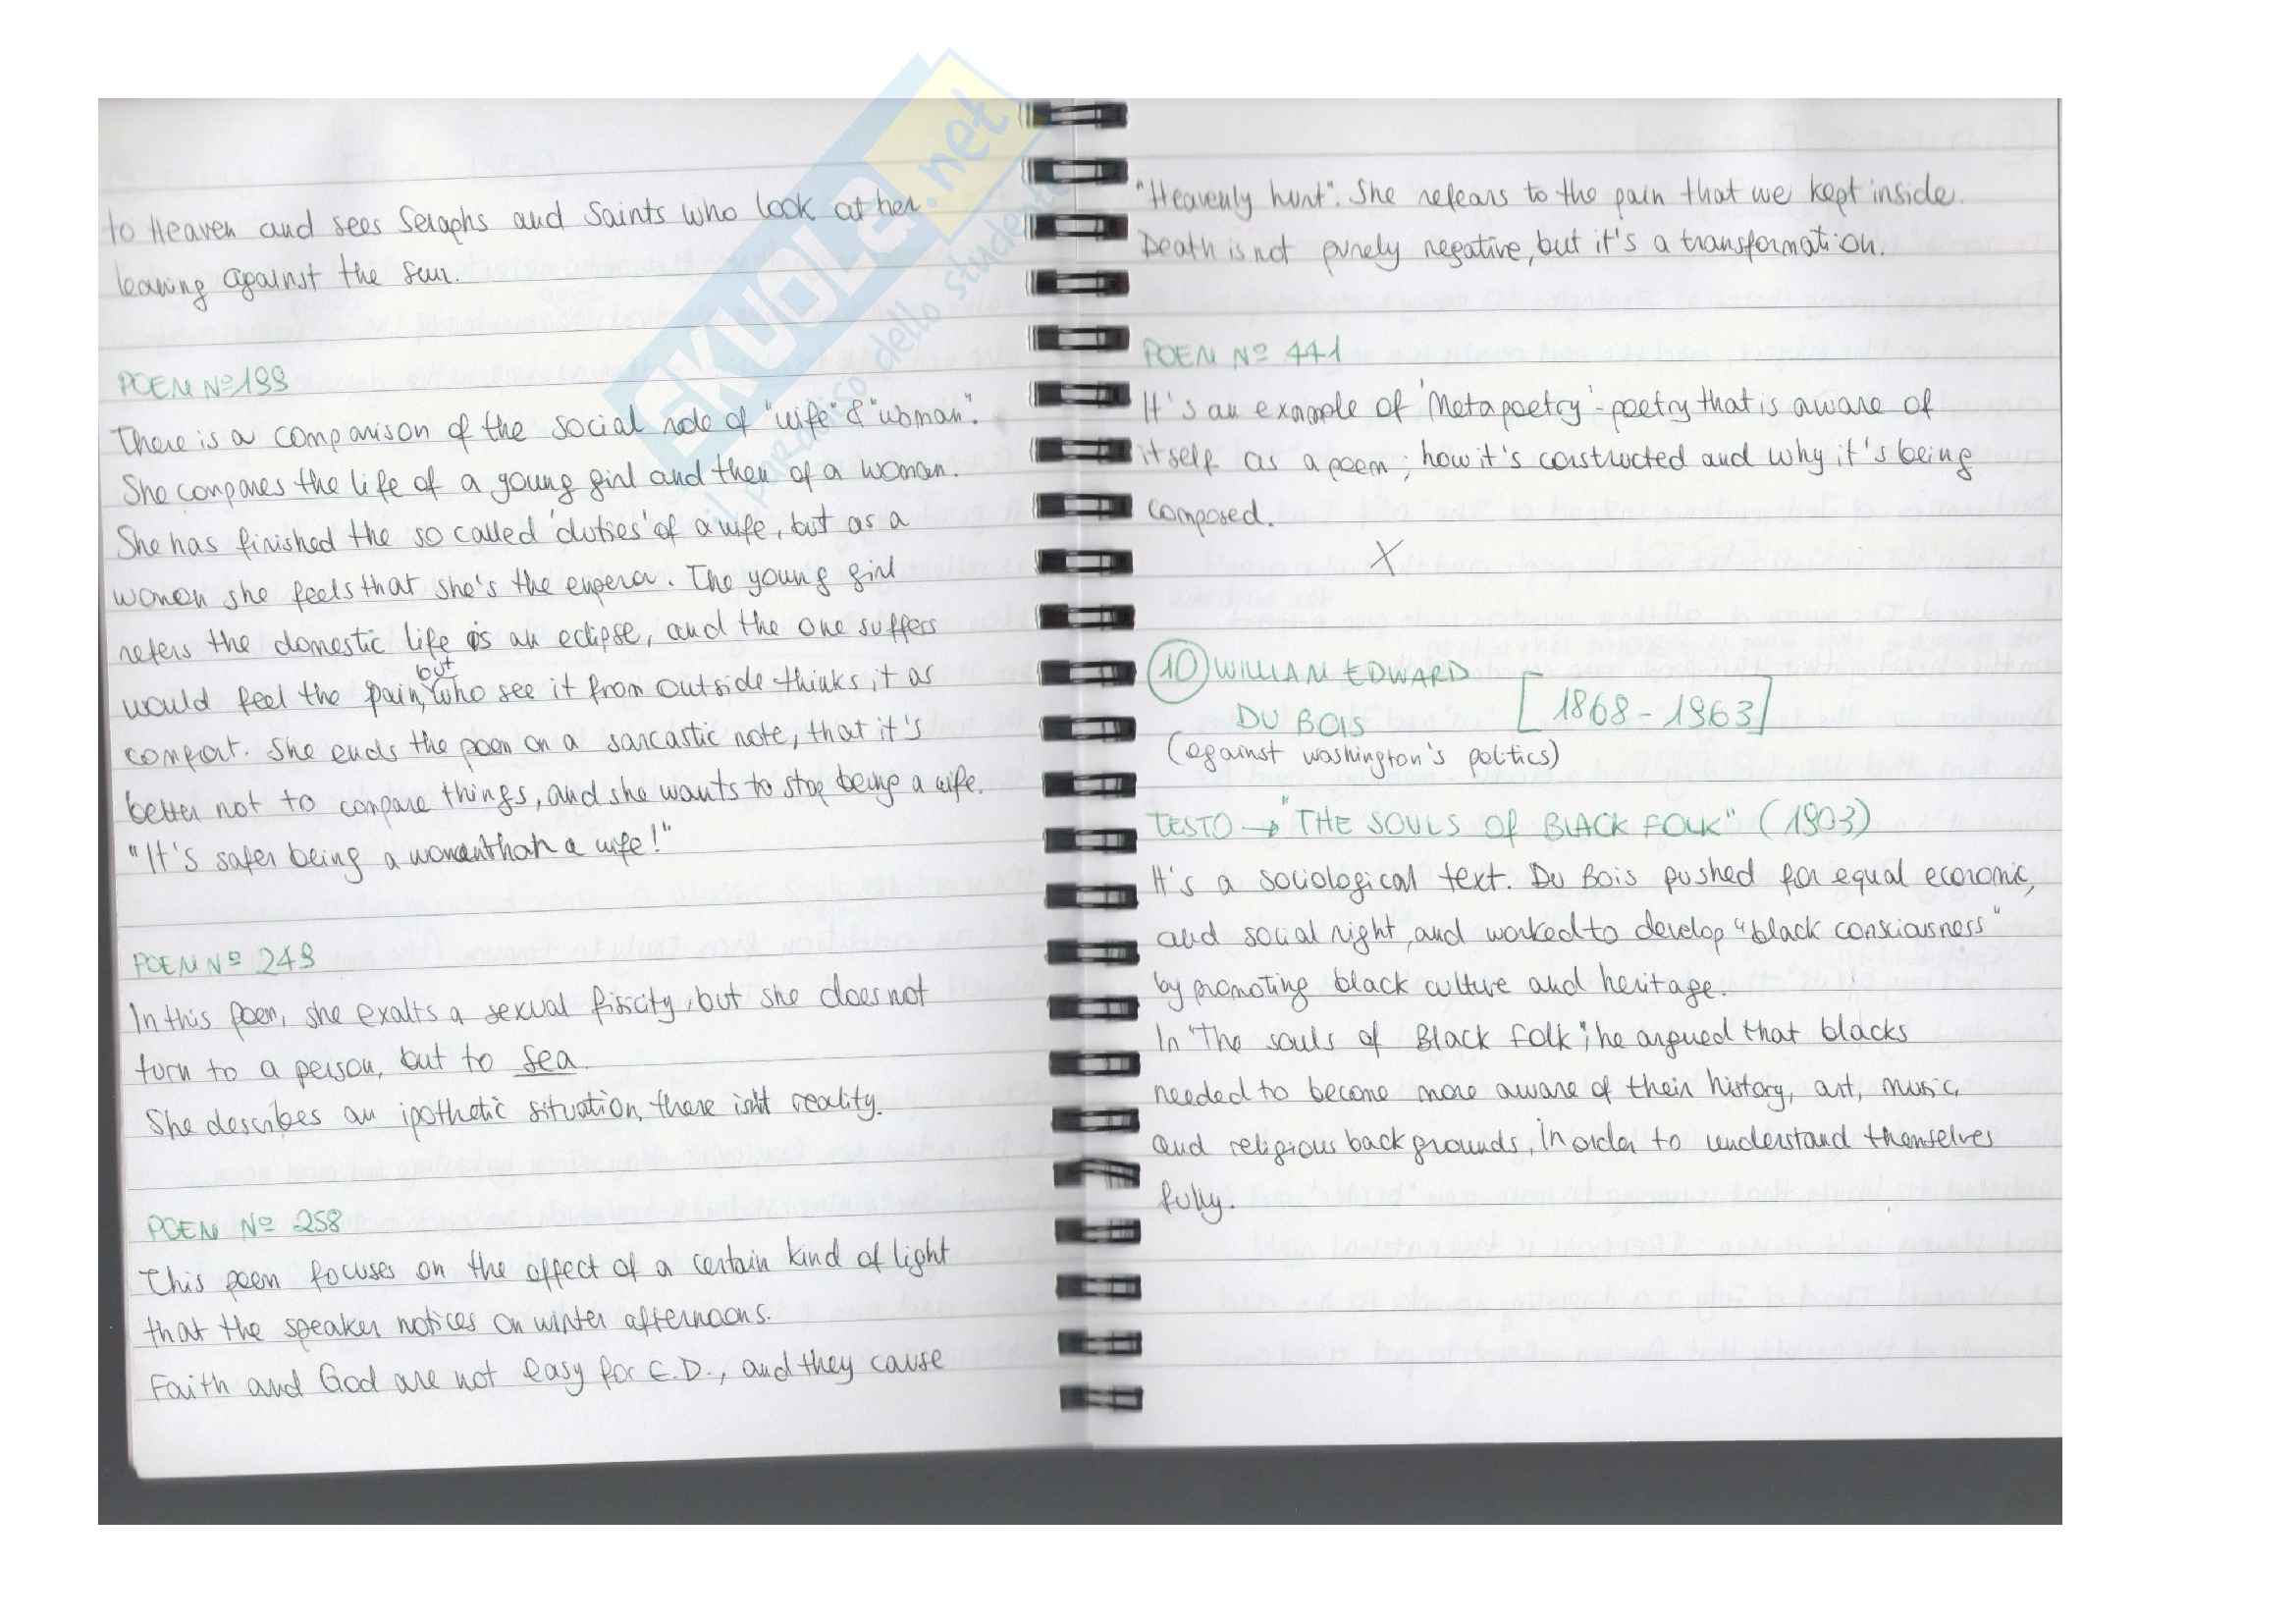 to Heaven and sees Seraphs and Saints who look at her
leaning against the sun.
POEM Nº 199
There is a comparison of the social role of "wife" & "woman".
She compares the life of a young girl and then of a woman.
She has finished the so called 'duties' of a wife, but as a
women she feels that she's the emperor. The young girl
refers the domestic life is an eclipse, and the one suffers
would feel the pain, but who see it from outside thinks it as
comfort. She ends the poem on a sarcastic note, that it's
better not to compare things, and she wants to stop being a wife.
"It's safer being a woman than a wife!"
POEM Nº 249
In this poem, she exalts a sexual fisicity, but she does not
turn to a person, but to sea.
She describes an ipothetic situation, there isn't reality.
POEM Nº 258
This poem focuses on the effect of a certain kind of light
that the speaker notices on winter afternoons.
Faith and God are not easy for E.D., and they cause
"Heavenly hurt". She refears to the pain that we kept inside.
Death is not purely negative, but it's a transformation.
POEM Nº 441
It's an example of 'Metapoetry' - poetry that is aware of
itself as a poem; how it's constructed and why it's being
composed.
X
10 WILLIAM EDWARD
DU BOIS [1868-1963]
(against washington's politics)
TESTO → "THE SOULS Of BLACK FOLK" (1903)
It's a sociological text. Du Bois pushed for equal economic,
and social right, and worked to develop "black consciousness"
by promoting black culture and heritage.
In "The souls of Black Folk", he argued that blacks
needed to become more aware of their history, art, music,
and religious backgrounds, in order to understand themselves
fully.
SKUOLA.net
il paradiso dello studente